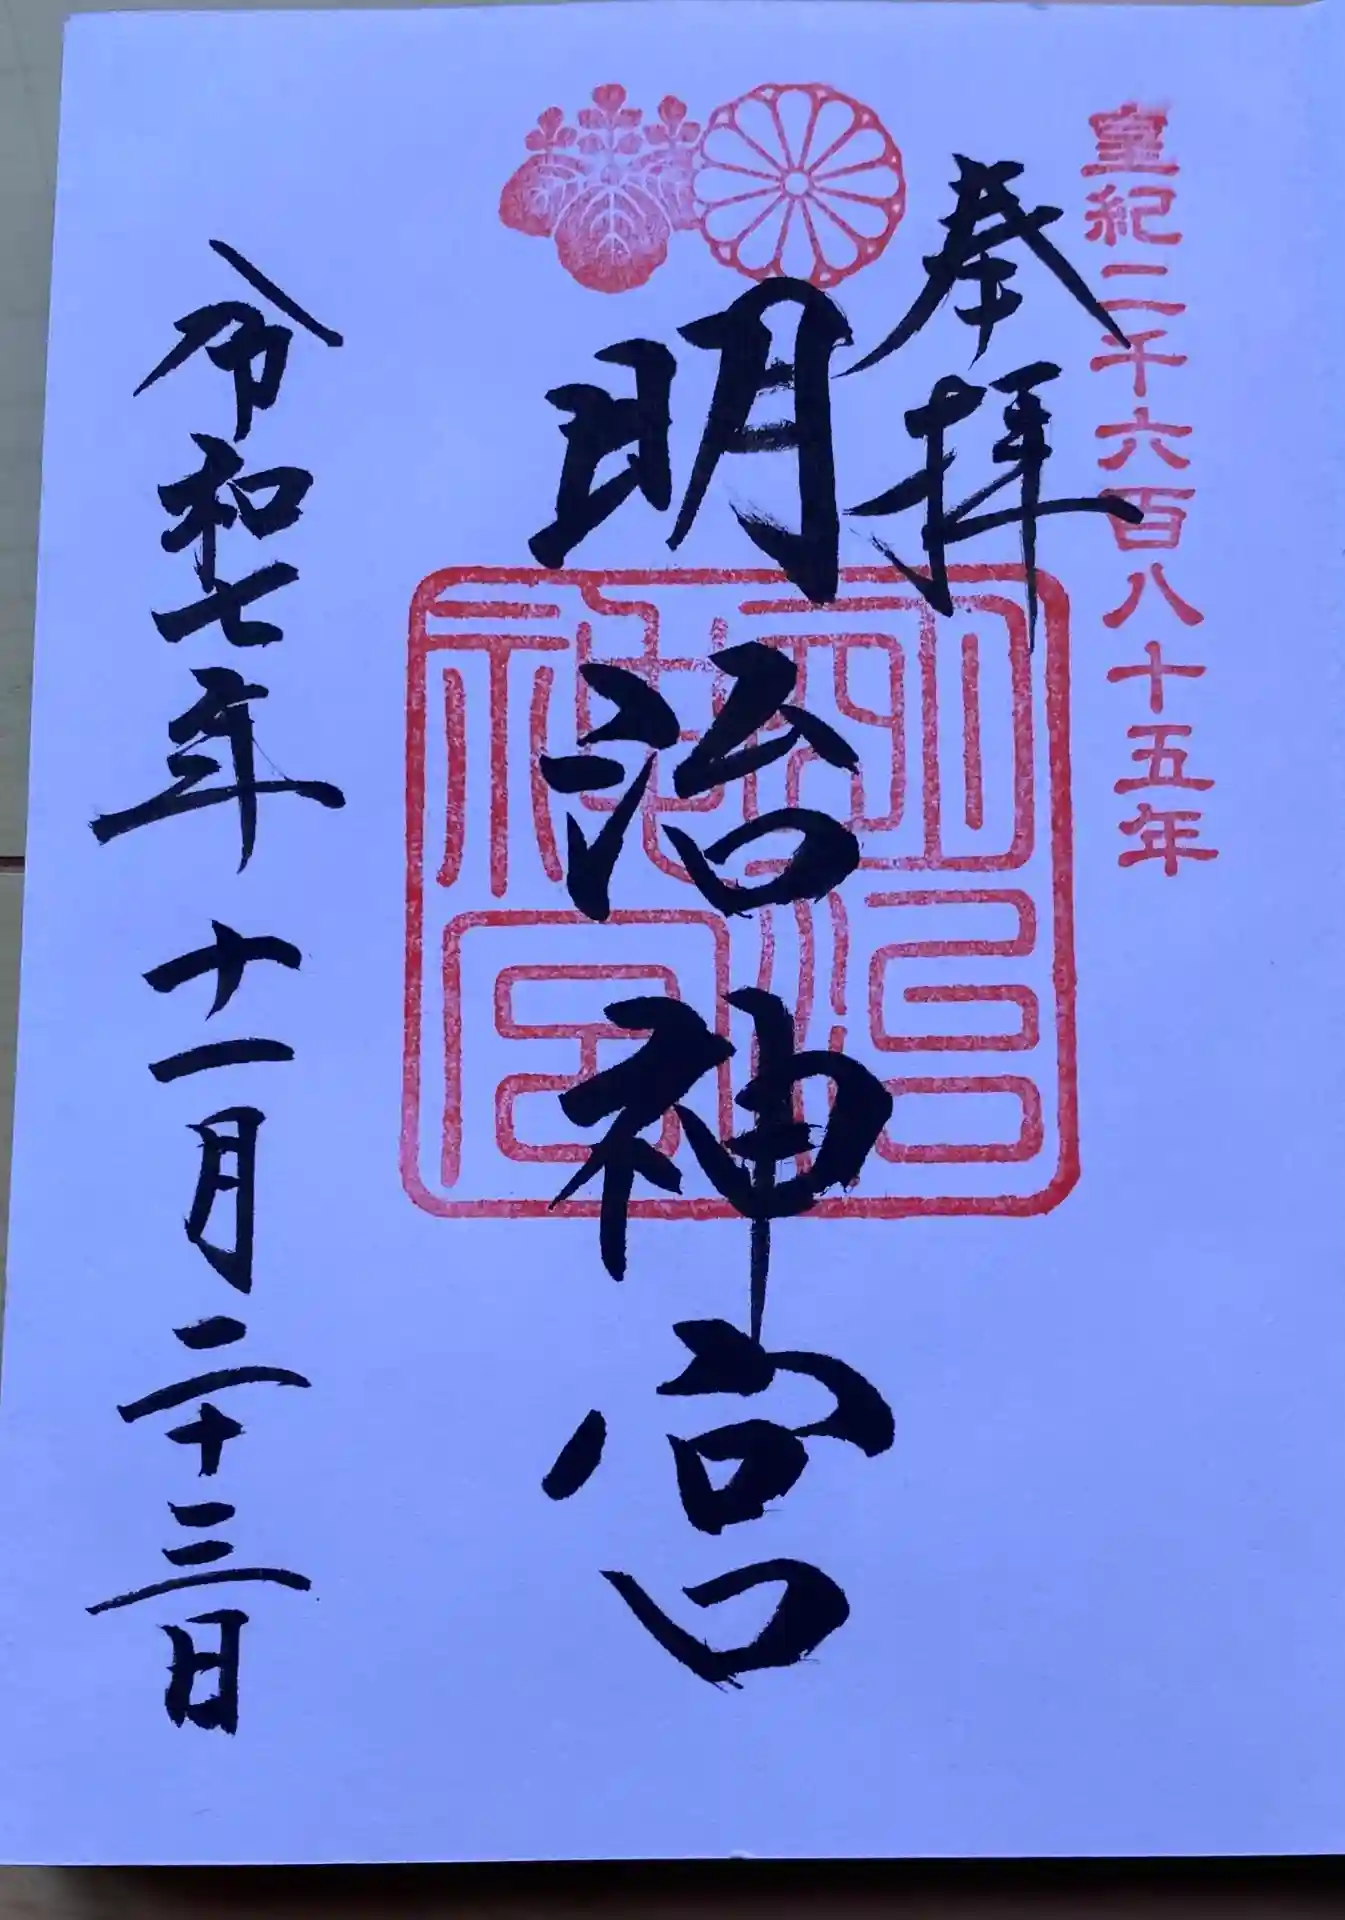 皇紀二千六百八十五年
奉拝
明治神宮
明治神宮
令和七年十一月二十三日